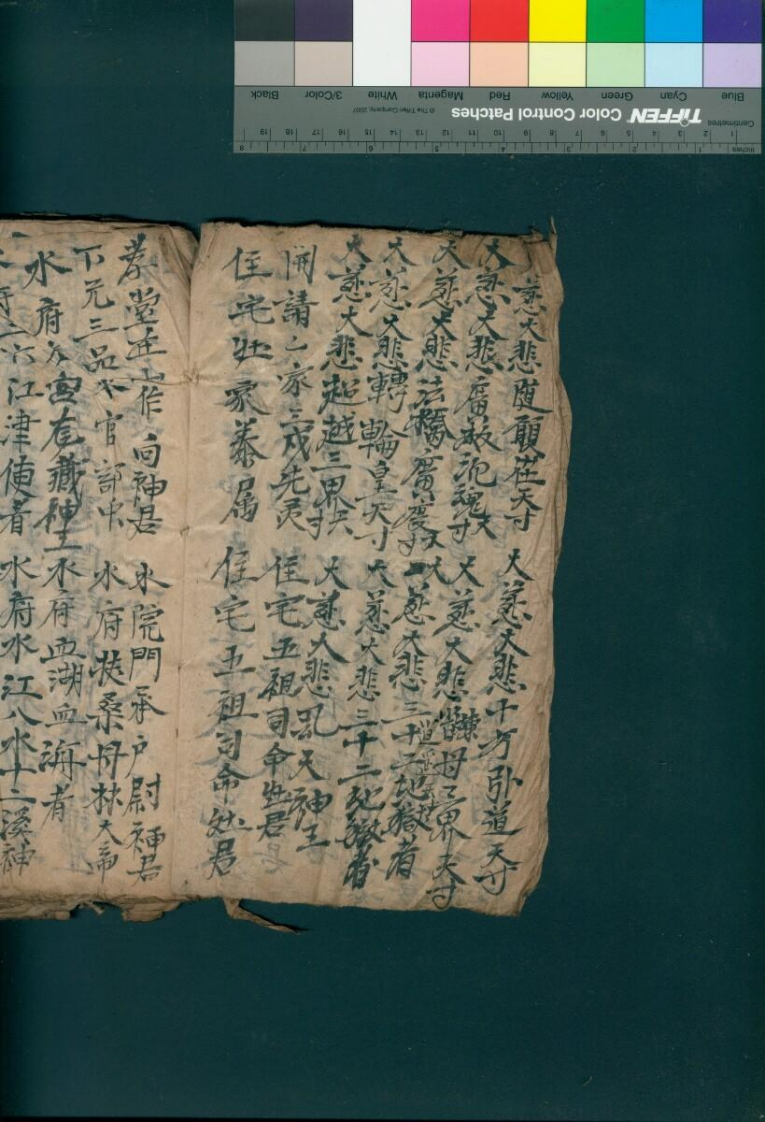 大慈大悲隨願往天寸 大慈大悲十方引道天寸
大慈大悲廣救沉魂天寸 大慈大悲 母三界天寸
大慈大悲法橋廣度天寸 大慈大悲三十二地獄者
大慈大悲轉輪皇天寸 大慈大悲三十二地獄者
大慈大悲超越三界天寸 大慈大悲 天神王
開請 家三戌先灵 住宅五祖司命灶君
住宅 家 属 住宅五祖司命灶君
孝堂正作向神君 水院門承户尉神君
下元三品水官部中 水府扶桑丹林大帝
水府 宫 藏神王 水府血湖血海者
水府 江津使者 水府水江八水十二溪神
Blue Cyan Green Yellow Red Magenta White 3/Color Black
TIFFEN Color Control Patches © The Tiffen Company, 2007
Centimetres 1 2 3 4 5 6 7 8 9 10 11 12 13 14 15 16 17 18 19
Inches